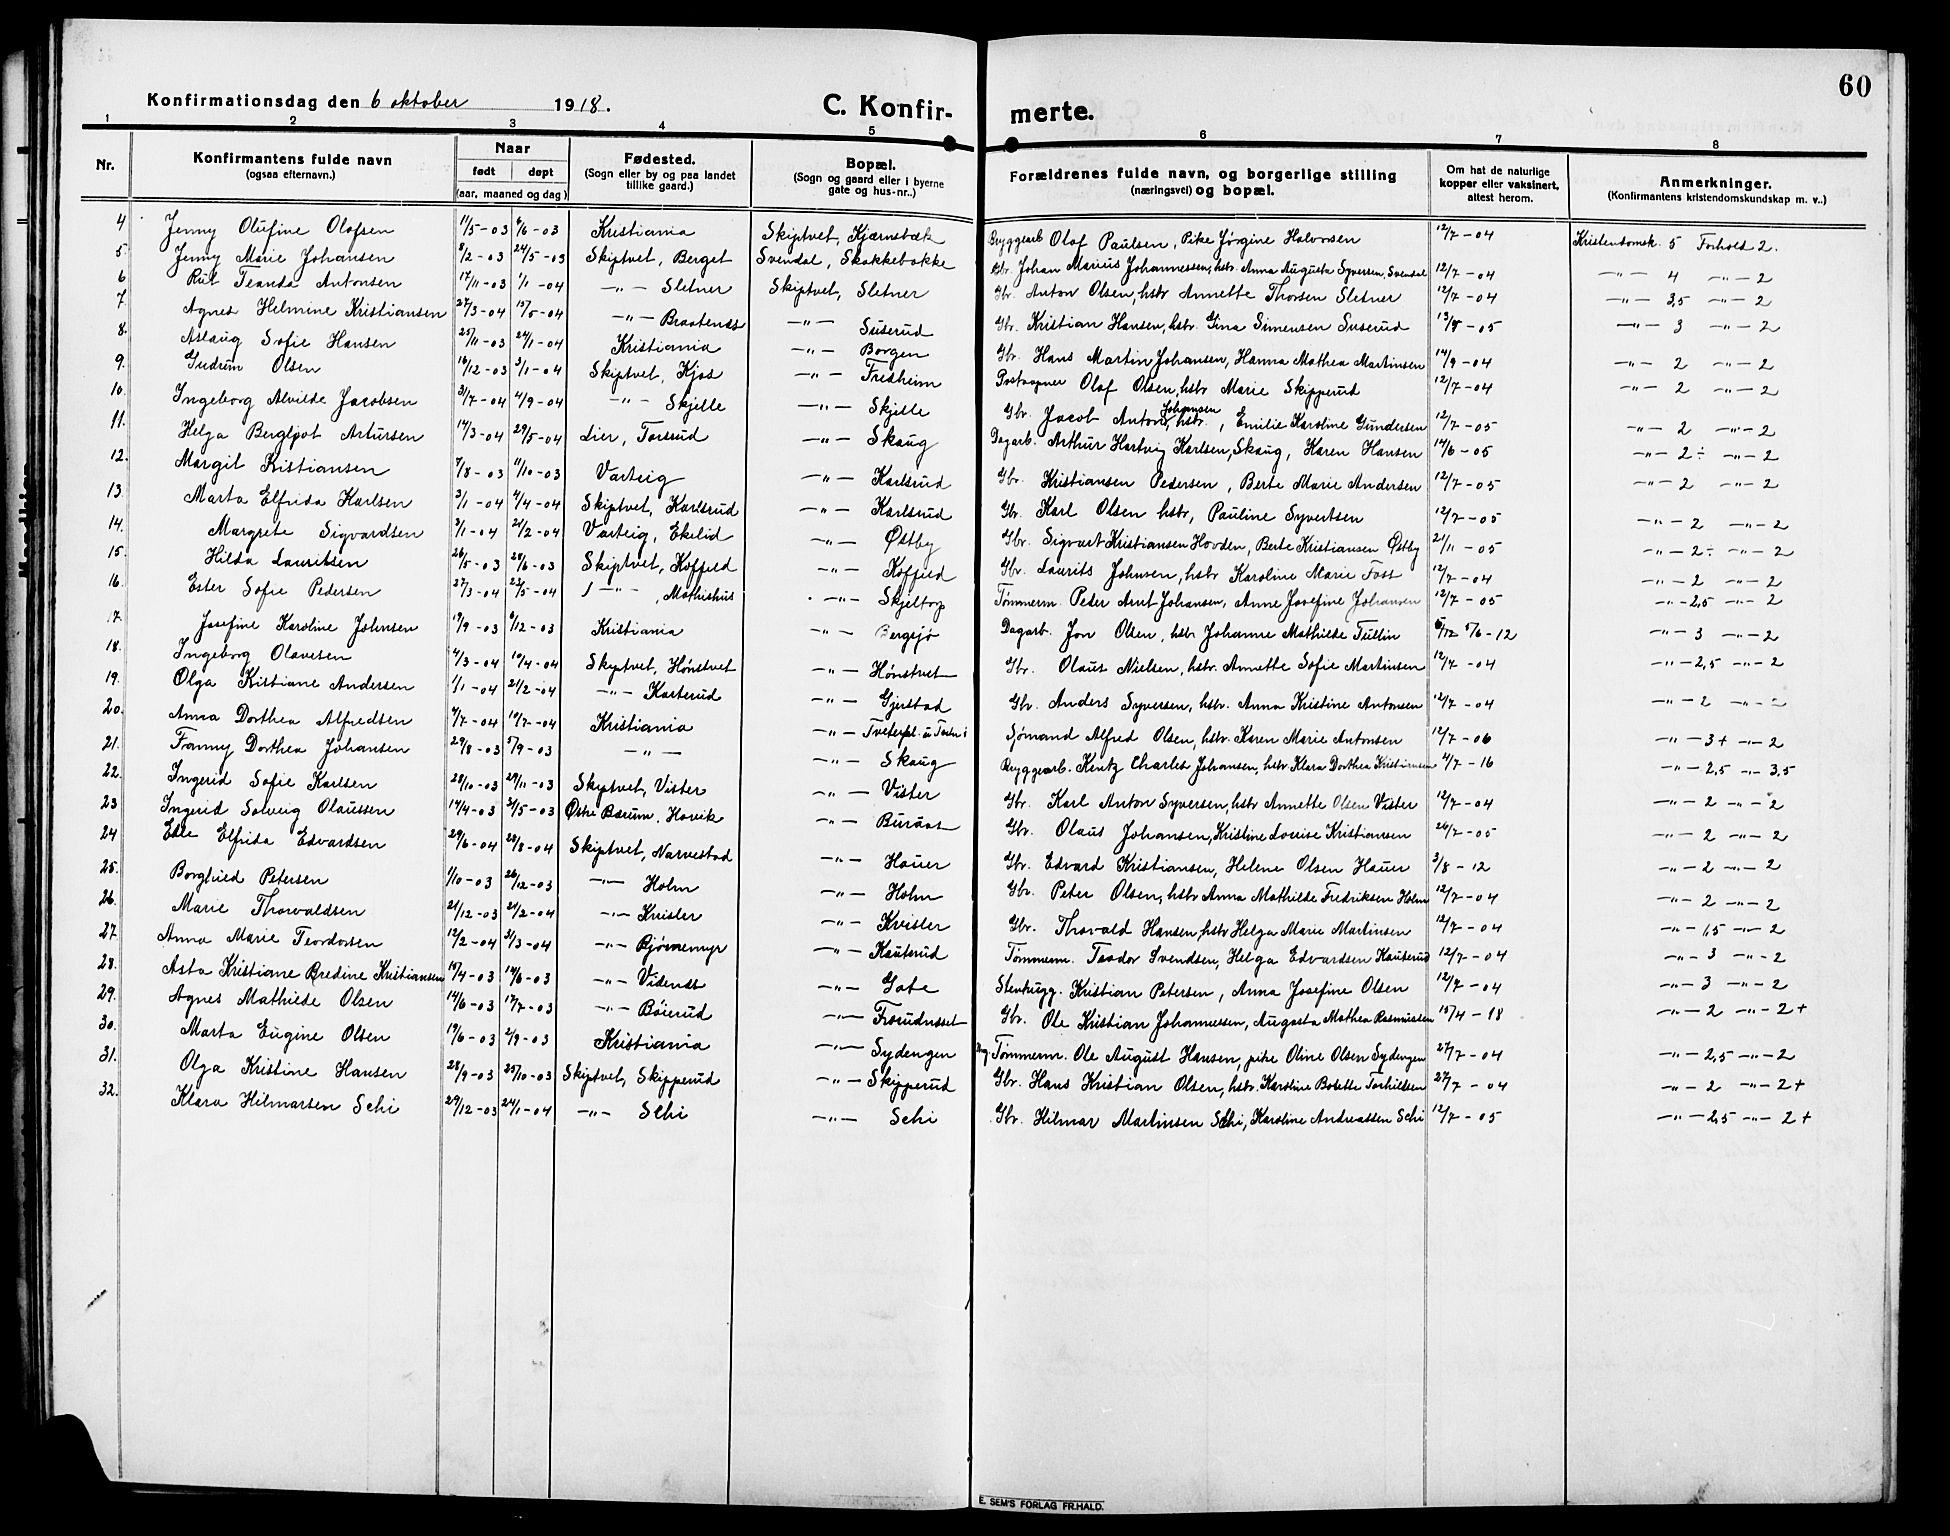 60
Konfirmationsdag den 6 oktober 1918. C. Konfir- merte.
1 2 3 4 5 6 7 8
Nr. Konfirmantens fulde navn (ogsaa efternavn.) Naar født døpt (aar, maaned og dag) Fødested. (Sogn eller by og paa landet tillike gaard.) Bopæl. (Sogn og gaard eller i byerne gate og hus-nr..) Forældrenes fulde navn, og borgerlige stilling (næringsvei) og bopæl. Om hat de naturlige kopper eller vaksinert, altest herom. Anmerkninger. (Konfirmantens kristendomskundskap m. v..)
4 Jenny Olufine Olafsen 11/5-03 6/6-03 Kristiania Skiptvet, Kjærnsbæk Bryggearb Olaf Paulsen, Pike Jørgine Halvorsen 12/7-04 Kristendomsk. 5 Forhold 2.
5. Jenny Marie Johansen 8/2-03 24/5-03 Skiptvet, Berget Svendal, Skakkebakke Gbr. Johan Marius Johannessen, hstr. Anna Augusta Syversen, Svendal 12/7-04 -"- 4 -"- 2
6 Rut Teanda Antonsen 17/11-03 1/1-04 -"- Sletner Skiptvet, Sletner Gbr. Anton Olsen, hstr Annette Thorsen Sletner 12/7-04 -"- 3,5 -"- 2
7 Agnes Helmine Kristiansen 27/3-04 13/5-04 -"- Braatenes -"- Suserud Gbr. Kristian Hansen, hstr. Gina Simensen Suserud 13/8-05 -"- 3 -"- 2
8. Aslaug Sofie Hansen 25/11-03 24/1-04 Kristiania -"- Borgen Gbr. Hans Martin Johansen, Hanna Mathea Martinsen 14/9-04 -"- 2 -"- 2
9. Gudrun Olsen 16/12-03 3/1-04 Skiptvet, Kjos -"- Fredheim Postaapner Olaf Olsen, hstr Marie Skipperud 12/7-04 -"- 2 -"- 2
10. Ingeborg Alvilde Jacobsen 3/7-04 4/9-04 -"- Skjelle -"- Skjelle Gbr. Jacob Anton Johansen, hstr., Emilie Karoline Gundersen 12/7-05 -"- 2 -"- 2
11. Helga Bergljot Artursen 14/3-04 29/5-04 Lier, Torsrud -"- Skaug Dagarb. Arthur Hartvig Karlsen, Skaug, Karen Hansen 14/6-05 -"- 2÷ -"- 2
12. Margit Kristiansen 7/8-03 11/10-03 Varteig -"- Karlsrud Gbr. Kristiansen Pedersen, Berte Marie Andersen 12/7-05 -"- 2 -"- 2
13. Marta Elfrida Karlsen 3/1-04 4/4-04 Skiptvet, Karlsrud -"- Karlsrud Gbr. Karl Olsen hstr, Pauline Syvertsen 12/7-05 -"- 2 -"- 2
14. Margrete Sigvardsen 3/1-04 24/2-04 Varteig, Ekelid -"- Østby Gbr. Sigvart Kristiansen Hovden, Berte Kristiansen Østby 21/11-05 -"- 2÷ -"- 2
15. Hilda Lauritsen 26/5-03 28/6-03 Skiptvet, Koffeld -"- Koffeld Gbr. Laurits Johnsen, hstr Karoline Marie Foss 12/7-04 -"- 2 -"- 2
16. Ester Sofie Pedersen 27/3-04 23/5-04 -"-, Mathishus -"- Skjeltorp Tømmerm. Peder Arnt Johansen, Anne Josefine Johansen 12/7-05 -"- 2,5 -"- 2
17. Josefine Karoline Johnsen 19/9-03 6/12-03 Kristiania -"- Bergsjø Dagarb. Jon Olsen, hstr Johanne Mathilde Tullin 5/6-12 -"- 3 -"- 2
18. Ingeborg Olavesen 4/3-04 10/4-04 Skiptvet, Hønstvet -"- Hønstvet Gbr. Olaus Nielsen, hstr. Annette Sofie Martinsen 12/7-04 -"- 2,5 -"- 2
19. Olga Kristiane Andersen 1/1-04 21/2-04 -"- Karterud -"- Gjelstad Gbr. Anders Syversen, hstr. Anna Kristine Antonsen 12/7-04 -"- 2 -"- 2
20. Anna Dorthea Alfredsen 4/7-04 10/7-04 Kristiania -"- Tveterpl. Sjømand Alfred Olsen, hstr. Karen Marie Antonsen 12/7-06 -"- 3+ -"- 2
21. Franny Dorthea Johansen 29/8-03 5/9-03 -"- -"- Skaug Bryggearb. Kentz Charles Johansen, hstr Klara Dorthea Kristiansen 4/7-16 -"- 2,5 -"- 3,5
22. Ingerid Sofie Karlsen 28/10-03 29/11-03 Skiptvet, Vister -"- Vister Gbr. Karl Anton Syversen, hstr Annette Olsen Vister 12/7-04 -"- 2 -"- 2
23 Ingerid Solveig Olaussen 14/4-03 31/5-03 Østre Bærum, Høvik -"- Buraas Gbr. Olaus Johansen, Kristine Louise Kristiansen 26/7-05 -"- 2 -"- 2
24 Edle Elfrida Edvardsen 29/6-04 28/8-04 Skiptvet, Narvestad -"- Hauer Gbr. Edvard Kristiansen, Helene Olsen Hauer 3/8-12 -"- 2 -"- 2
25. Borghild Petersen 1/10-03 26/12-03 -"- Holm -"- Holm Gbr. Peter Olsen, hstr Anna Mathilde Fredriksen Holm 12/7-04 -"- 2 -"- 2
26. Marie Thorvaldsen 21/12-03 21/2-04 -"- Kvisler -"- Kvisler Gbr. Thorvald Hansen, hstr Helga Marie Martinsen 12/7-04 -"- 1,5 -"- 2
27. Anna Marie Teordorsen 12/2-04 31/3-04 -"- Bjørnemyr -"- Kauterud Tømmerm. Teodor Svendsen, Helga Edvardsen Kauterud 12/7-04 -"- 3 -"- 2
28. Asta Kristiane Bredine Kristiansen 19/4-03 14/6-03 -"- Videnes -"- Gate Stenhugg. Kristian Petersen, Anna Josefine Olsen 12/7-04 -"- 3 -"- 2
29. Agnes Mathilde Olsen 14/6-03 17/7-03 -"- Böierud -"- Gbr. Ole Kristian Johannessen, Augusta Mathea Rasmussen 15/4-18 -"- 2 -"- 2+
30. Marta Eugine Olsen 19/6-03 2/9-03 Kristiania -"- Sydengen Tømmerm. Ole August Hansen, pike Oline Olsen Sydengen 27/7-04 -"- 2,5 -"- 2
31. Olga Kristine Hansen 28/9-03 25/10-03 Skiptvet, Skipperud -"- Skipperud Gbr. Hans Kristian Olsen, hstr. Karoline Bolette Torhildsen 27/7-04 -"- 2 -"- 2+
32. Klara Hilmarsen Sehi 29/12-03 24/1-04 -"- Sehi -"- Sehi Gbr. Hilmar Martinsen Sehi, Karoline Andreassen Sehi 12/7-05 -"- 2,5 -"- 2+
E. SEM'S FORLAG FR.HALD.